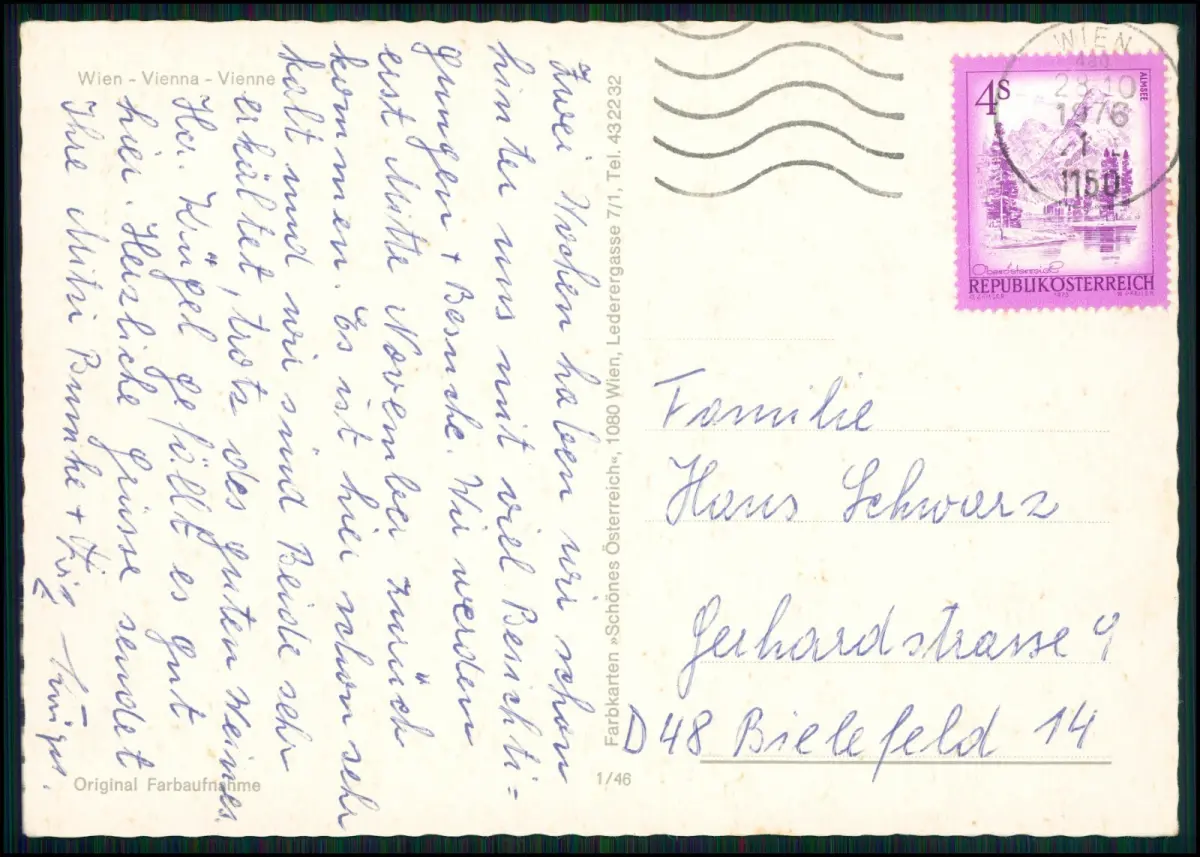 Wien - Vienna - Vienne
Zwei Wochen haben wir schon
hinter uns mit viel Besichti=
gungen + Besuche. Wir werden
erst Mitte November zurück
kommen. Es ist hier schon sehr
kalt und wir sind Beide sehr
erkältet, trotz des guten Weines
Her. Krügel gefällt es gut
hier. Herzliche Grüsse sendet
Ihre Mitzi Bunke +
Original Farbaufnahme
Farbkarten »Schönes Österreich«, 1080 Wien, Lederergasse 7/1, Tel. 4322232
1/46
WIEN
28.10
1976
1150
4S
ALMSEE
Oberösterreich
REPUBLIK ÖSTERREICH
1973
Familie
Hans Schwarz
Gerhardstrasse 9
D48 Bielefeld 14